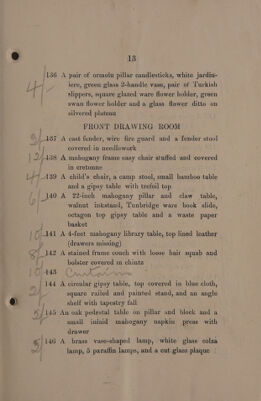 13
4/- 136 A pair of ormolu pillar candlesticks, white jardin-
iere, green glass 2-handle vase, pair of Turkish
slippers, square glazed ware flower holder, green
swan flower holder and a glass flower ditto on
silvered plateau
FRONT DRAWING ROOM
137 A cast fender, wire fire guard and a fender stool
covered in needlework
12/- 138 A mahogany frame easy chair stuffed and covered
in cretonne
139 A child's chair, a camp stool, small bamboo table
and a gipsy table with trefoil top
6/- 140 A 22-inch mahogany pillar and claw table,
walnut inkstand, Tunbridge ware book slide,
octagon top gipsy table and a waste paper
basket
10/- 141 A 4-feet mahogany library table, top lined leather
(drawers missing)
8/- 142 A stained frame couch with loose hair squab and
bolster covered in chintz
10/- 143 Curtains
2/- 144 A circular gipsy table, top covered in blue cloth,
square railed and painted stand, and an angle
shelf with tapestry fall
5/- 145 An oak pedestal table on pillar and block and a
small inlaid mahogany napkin press with
drawer
5/- 146 A brass vase-shaped lamp, white glass colza
lamp, 5 paraffin lamps, and a cut glass plaque